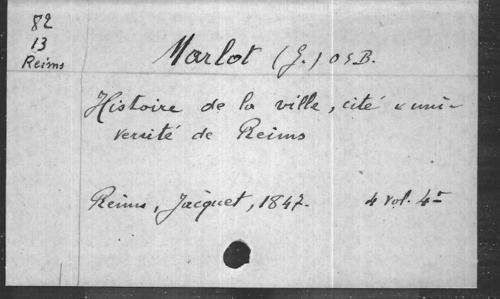 82
13
Reims
Marlot (G.) OSB.
Histoire de la ville, cité & uni-
versité de Reims
Reims, Jacquet, 1847. 4 vol. 4°